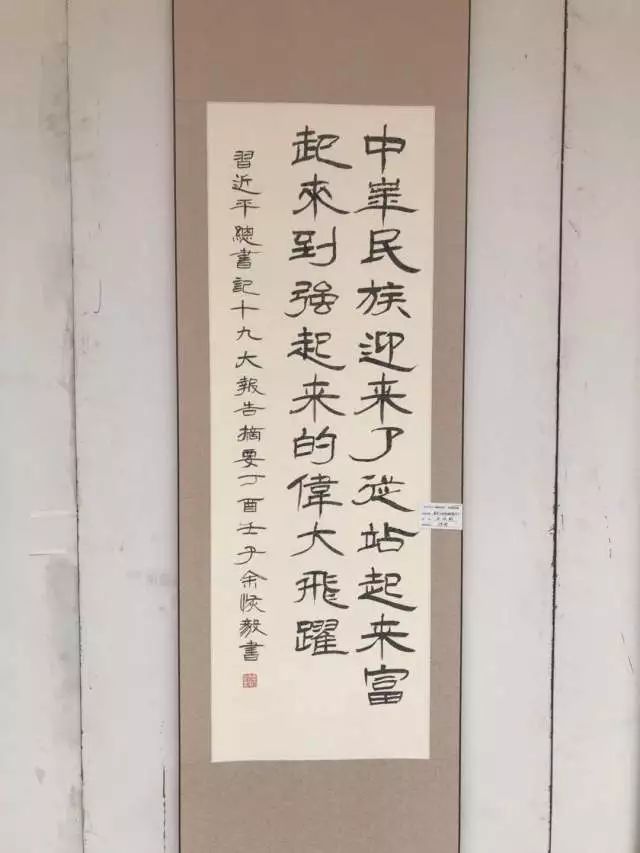 中華民族迎来了從站起来富
起來到強起来的偉大飛躍
習近平總書記十九大報告摘要丁酉壬子余汝毅書